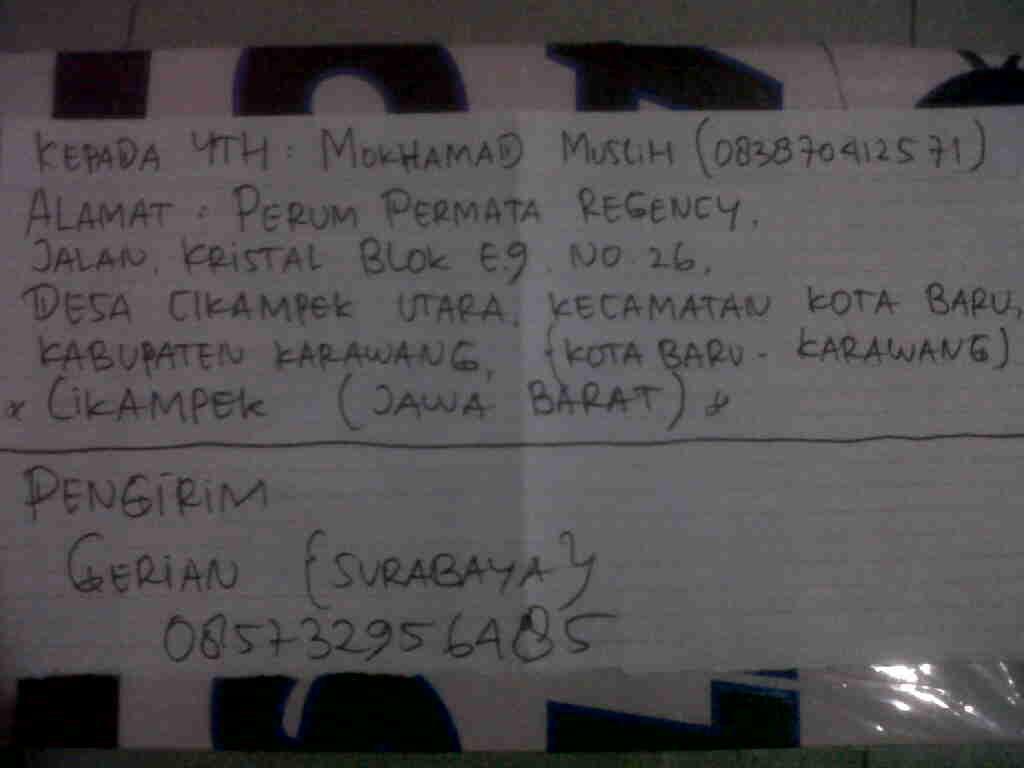 KEPADA YTH : MOKHAMAD MUSLIH (083870412571)
ALAMAT : PERUM PERMATA REGENCY.
JALAN. KRISTAL BLOK E.9. NO 26,
DESA CIKAMPEK UTARA. KECAMATAN KOTA BARU,
KABUPATEN KARAWANG, {KOTA BARU - KARAWANG)
* CIKAMPEK (JAWA BARAT) *
PENGIRIM
GERIAN {SURABAYA}
085732956485